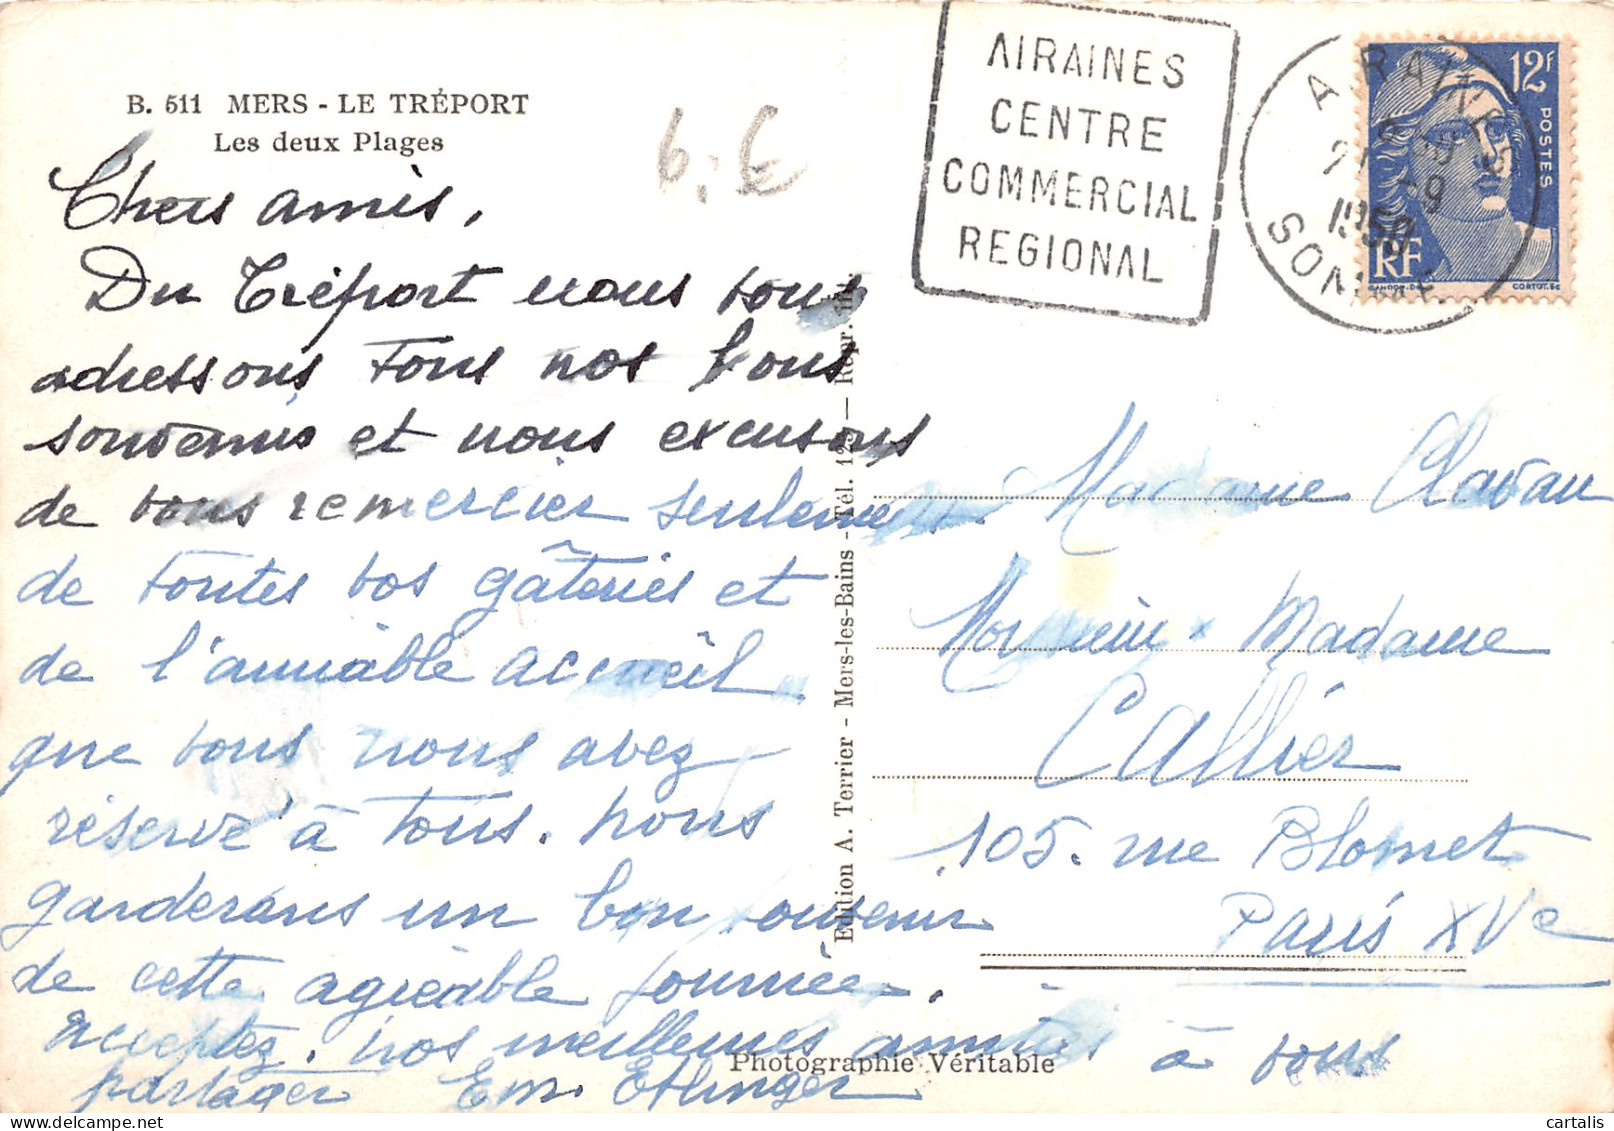 B. 511 MERS - LE TRÉPORT
Les deux Plages
6.€
AIRAINES
CENTRE
COMMERCIAL
REGIONAL
AIRAINES
-9
1950
SOMME
12F
POSTES
RF
GANDON.DEL
CORTOT.SC
Chers amis,
Du Tréport nous vous
adressons tous nos bons
souvenirs et nous excusons
de vous remercier seulement
de toutes vos gâteries et
de l'amiable accueil
que vous nous avez
réservé à tous. nous
garderons un bon souvenir
de cette agréable journée.
Acceptez. nos meilleures amitiés à vous
partager Em. Etlinger
Edition A. Terrier - Mers-les-Bains - Tél. 123 — Repr. int.
Madame Clavau
Monsieur Madame
Callier
105. rue Blomet
Paris XVe
Photographie Véritable
cartalis